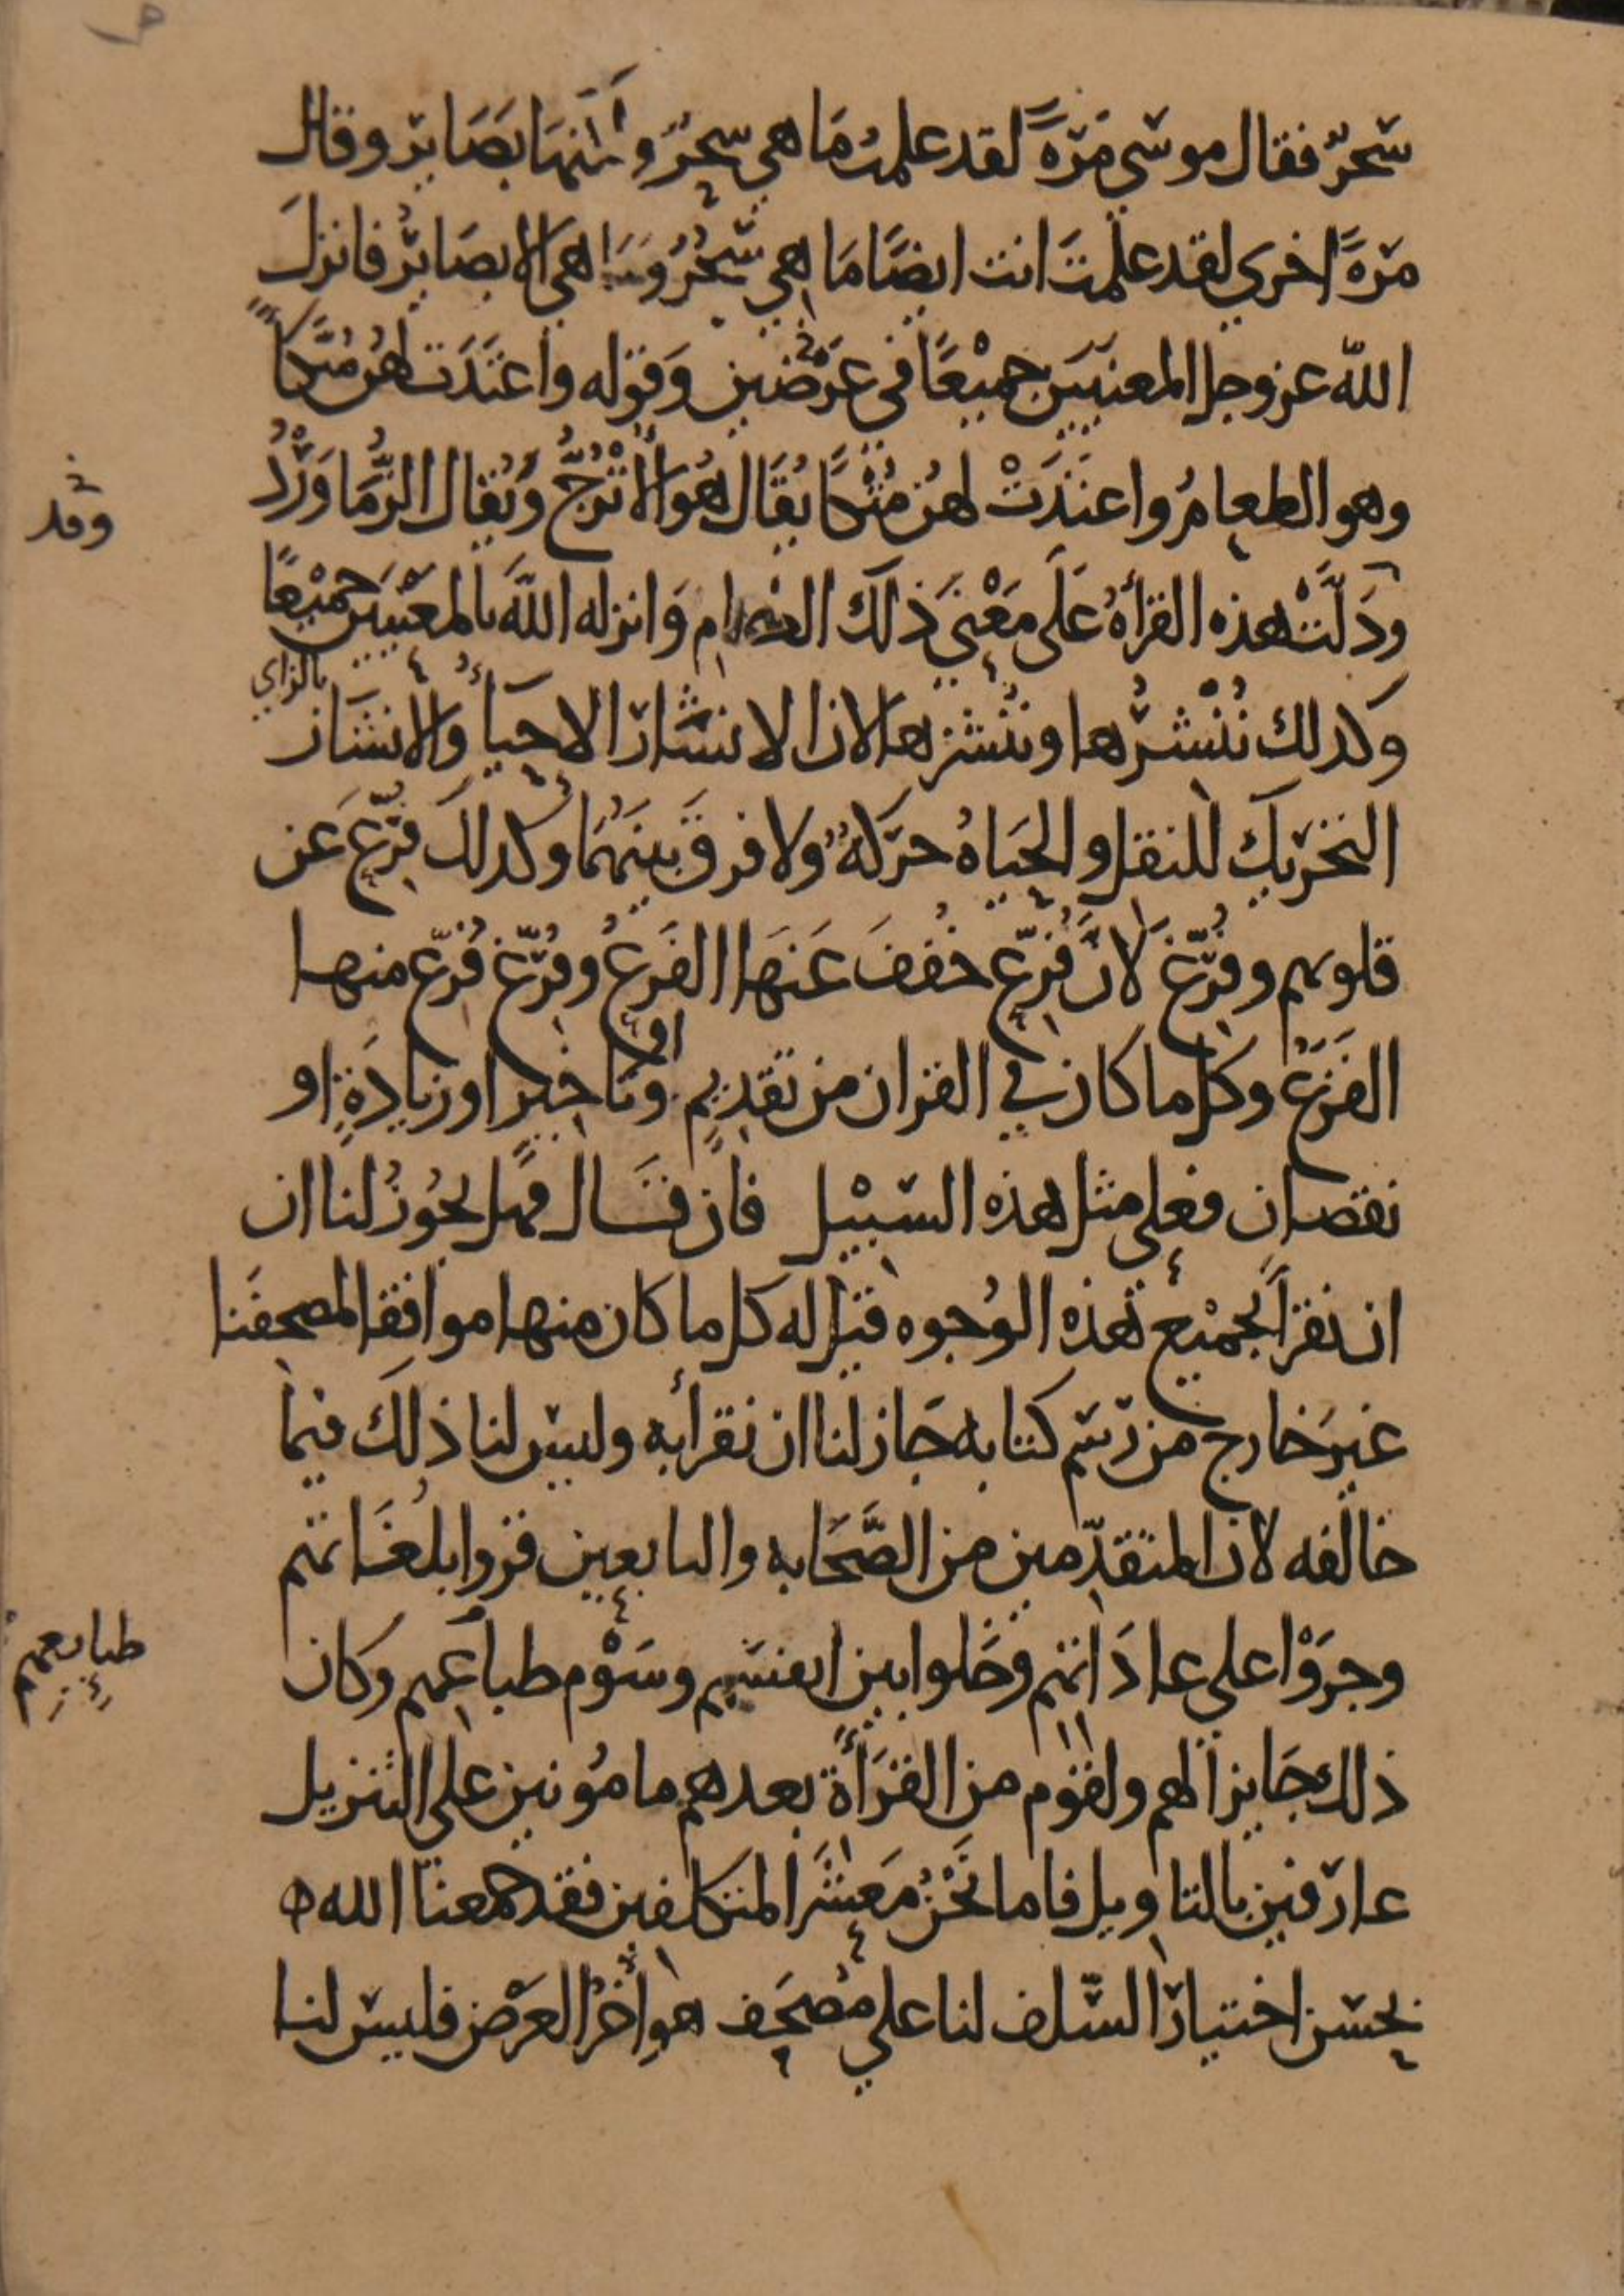 سحرٌ فقال موسى مَرّةً لقد علمتُ مَا هي سِحرٌ وأنّها بَصَاير وقال
مَرةً اخرى لقد علمتَ انت ايضًا مَا هي سِحْرٌ وَمَا هي الا بصَايرُ فانزلَ
الله عز وجل المعنيَين جميْعًا في عَرْضَين وَقوله واعتَدَت لهُن مُتَّكأً
وهو الطعامُ واعتَدَتْ لهُن مُتْكًا يُقَال هُوَ الأُتْرُجُّ وَيُقال الزُّمَاوَرْدُ
وقد
ودَلّتْ هذه القراةُ عَلَى مَعْنى ذلكَ الطعام وَانزله اللهُ بالمعنيَين جميْعًا
وكذلك نُنْشرُها وننُشزها لان الانشار الاحيَاءُ والانشَاز
بالزاي
التحريك للنقل والحيَاةُ حرَكةٌ ولا فرقَ بينَهُمَا وكذلك فُزّع عَن
قلوبهم وفُرّغ لانَّ فُزّع خُفِفَ عَنهَا الفَزعُ وفُرّغ فُرّغ منها
الفَزَعُ وكل ما كان في القران من تقديمٍ او تاخير او زيادَةٍ او
نقصان فعلى مثل هذه السّبيْل فان قال فهل يجُوزُ لنا ان
ان نقرأ بجميْع هذه الوُجوه قيل له كل ما كان منها موافقا لمصحفَنا
غيرَ خارج من رَسم كتابه جَاز لنا ان نقرأ به وليس لنا ذلك فيما
خالفه لان المتقدّمين من الصَّحَابه والتابعين قروا بلغَاتهم
وجرَوْا على عادَاتهم وخَلوا بين انفسهم وسَوْم طباعهم وكان
طبايعهم
ذلك جَايزا لهم ولقوم من القرَأَة بعدهم مامُونين على التنزيل
عارفين بالتاويل فاما نَحْنُ مَعشَرَ المتكلفين فقد جمعنا الله
بحسن اختيار السّلف لنا على مُصحَف هو أخرُ العَرْض فليس لنا